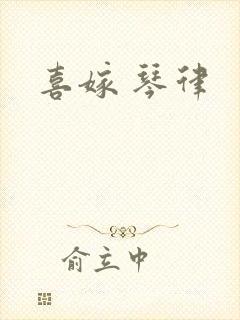 喜嫁琴律
俞立中